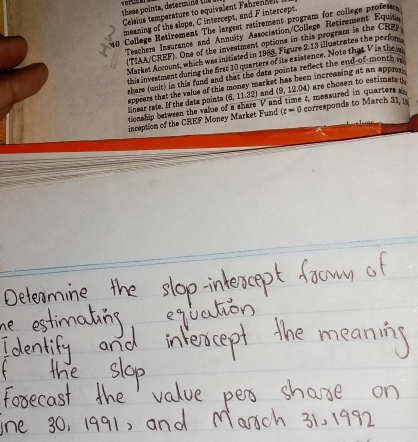 these points, determine the
Celsius temperature to equivalent Fahrenheit
meaning of the slope, C intercept, and F intercept.
HW
40 College Retirement The largest retirement program for college professors
Teachers Insurance and Annuity Association/College Retirement Equities
(TIAA/CREF). One of the investment options in this program is the CREF
Market Account, which was initiated in 1988. Figure 2.13 illustrates the performance
this investment during the first 10 quarters of its existence. Note that V is the
share (unit) in this fund and that the data points reflect the end-of-month
appears that the value of this money market has been increasing at an approx
linear rate. If the data points (6, 11.32) and (9, 12.04) are chosen to estimate the
tionship between the value of a share V and time t, measured in quarters
inception of the CREF Money Market Fund (t = 0 corresponds to March 31,
Determine the slop-intercept foomy of
he estimating equation
Identify and intercept the meaning
f the slop
Forecast the value per share on
une 30, 1991, and March 31, 1992